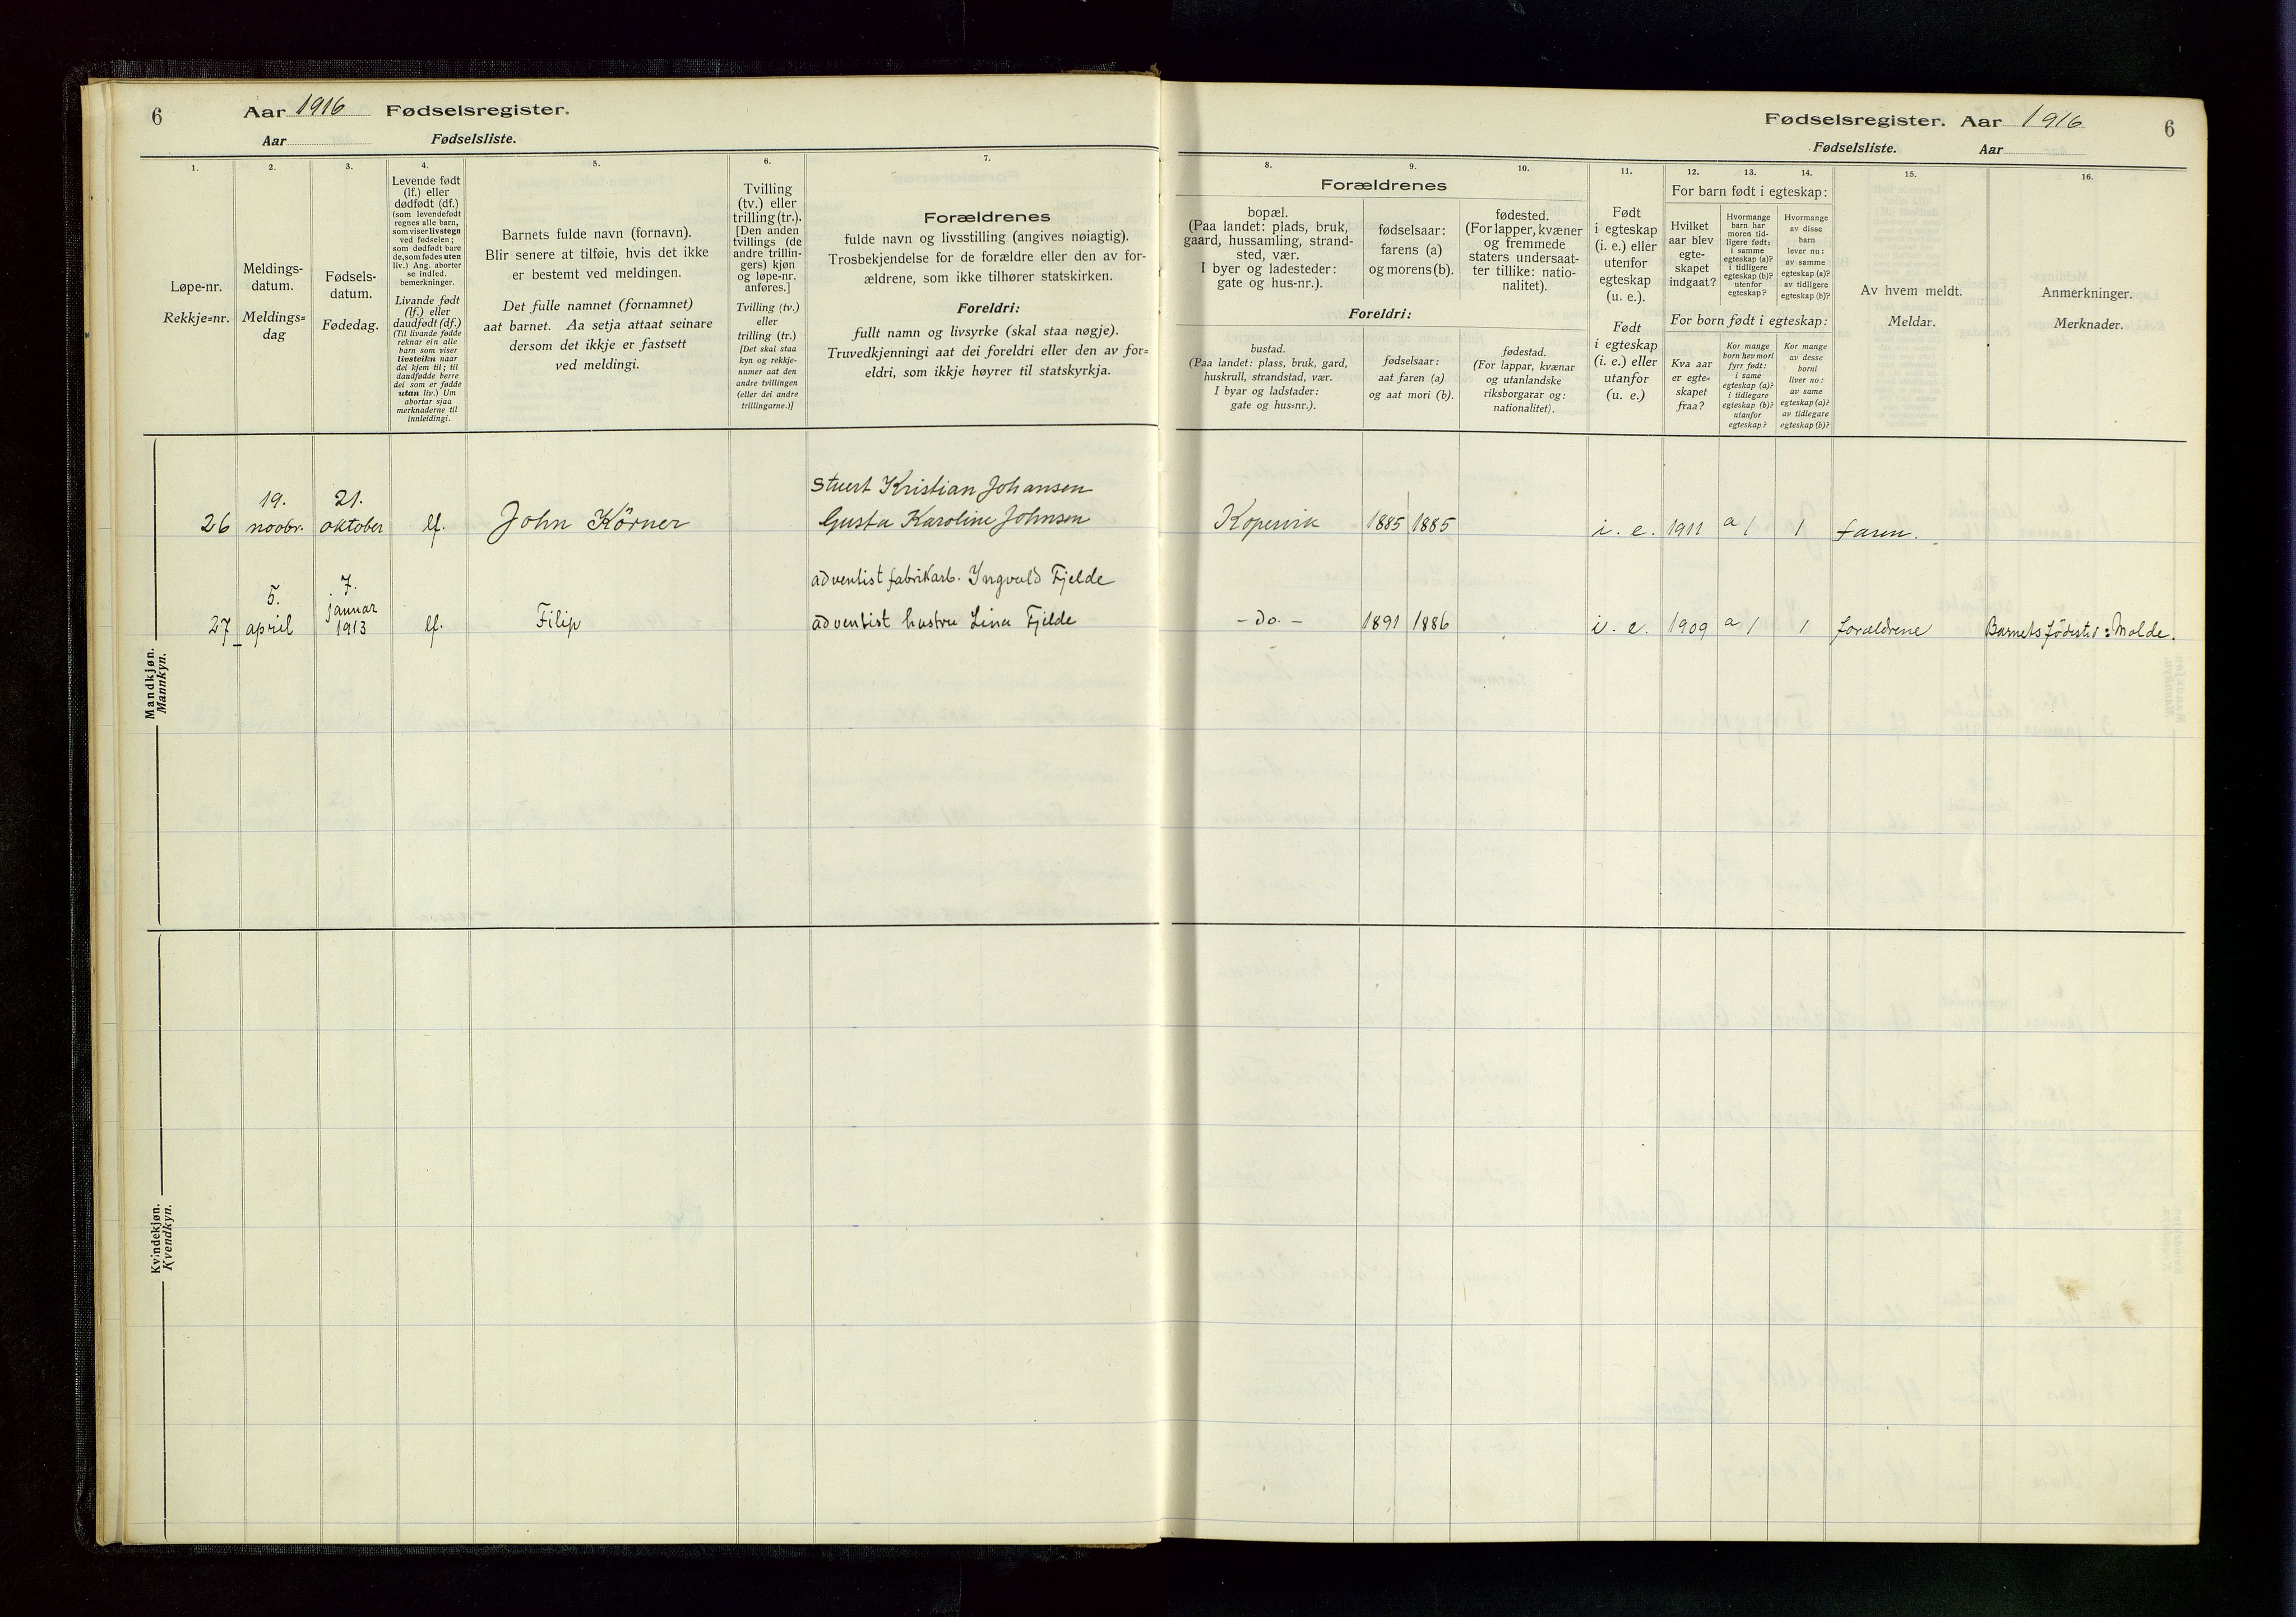 6
Aar 1916 Fødselsregister.
Aar Fødselsliste.
1.
2.
3.
4.
5.
6.
7.
Løpe-nr.
Rekkje=nr.
Meldings-
datum.
Meldings=
dag
Fødsels-
datum.
Fødedag.
Levende født
(lf.) eller
dødfødt (df.)
(som levendefødt
regnes alle barn,
som viser livstegn
ved fødselen;
som dødfødt bare
de, som fødes uten
liv.) Ang. aborter
se indled.
bemerkninger.
Livande født
(lf.) eller
daudfødt (df.)
(Til livande fødde
reknar ein alle
barn som viser
livsteikn naar
dei kjem til; til
daudfødde berre
dei som er fødde
utan liv.) Um
abortar sjaa
merknaderne til
innleidingi.
Barnets fulde navn (fornavn).
Blir senere at tilføie, hvis det ikke
er bestemt ved meldingen.
Det fulle namnet (fornamnet)
aat barnet. Aa setja attaat seinare
dersom det ikkje er fastsett
ved meldingi.
Tvilling
(tv.) eller
trilling (tr.).
[Den anden
tvillings (de
andre trillin-
gers) kjøn
og løpe-nr.
anføres.]
Tvilling (tv.)
eller
trilling (tr.)
[Det skal staa
kyn og rekkje-
numer aat den
andre tvillingen
(eller dei andre
trillingarne.)]
Forældrenes
fulde navn og livsstilling (angives nøiagtig).
Trosbekjendelse for de forældre eller den av for-
ældrene, som ikke tilhører statskirken.
Foreldri:
fullt namn og livsyrke (skal staa nøgje).
Truvedkjenningi aat dei foreldri eller den av for=
eldri, som ikkje høyrer til statskyrkja.
Mandkjøn.
Mannkyn.
26
19.
novbr.
21.
oktober
lf.
John Körner
Stuert Kristian Johansen
Gusta Karoline Johnsen
27
5.
april
7.
januar
1913
lf.
Filip
adventist fabrikarb. Yngvald Fjelde
adventist hustru Lina Fjelde
Kvindekjøn.
Kvendkyn.
Fødselsregister. Aar 1916
6
Fødselsliste. Aar
8.
9.
10.
11.
12.
13.
14.
15.
16.
Forældrenes
bopæl.
(Paa landet: plads, bruk,
gaard, hussamling, strand-
sted, vær.
I byer og ladesteder:
gate og hus-nr.).
fødselsaar:
farens (a)
og morens (b).
fødested.
(For lapper, kvæner
og fremmede
staters undersaat-
ter tillike: natio-
nalitet).
Foreldri:
bustad.
(Paa landet: plass, bruk, gard,
huskrull, strandstad, vær.
I byar og ladstader:
gate og hus=nr.).
fødselsaar:
aat faren (a)
og aat mori (b).
fødestad.
(For lappar, kvænar
og utanlandske
riksborgarar og:
nationalitet).
Født
i egteskap
(i. e.) eller
utenfor
egteskap
(u. e.).
Født
i egteskap
(i. e.) eller
utanfor
egteskap
(u. e.)
For barn født i egteskap:
Hvilket
aar blev
egte-
skapet
indgaat?
Hvormange
barn har
moren tid-
ligere født:
i samme
egteskap (a)?
i tidligere
egteskap (b)?
utenfor
egteskap?
Hvormange
av disse
barn
lever nu:
av samme
egteskap (a)?
av tidligere
egteskap (b)?
For born født i egteskap:
Kva aar
er egte=
skapet
fraa?
Kor mange
born hev mori
fyrr født:
i same
egteskap (a)?
i tidlegare
egteskap (b)?
utanfor
egteskap?
Kor mange
av desse
borni
liver no:
av same
egteskap (a)?
av tidlegare
egteskap (b)?
Av hvem meldt.
Meldar.
Anmerkninger.
Merknader.
Kopervik
1885 1885
i. e.
1911
a 1
1
faren.
- do. -
1891 1886
i. e.
1909
a 1
1
forældrene
Barnets fødested: Molde.